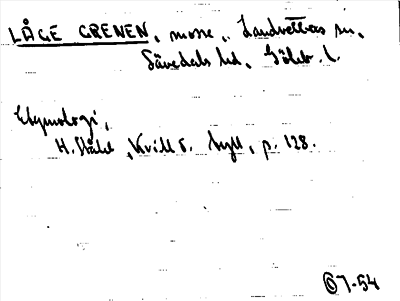 LÅGE GRENEN, mosse, Landvetters sn,
Sävedals hd, Göteb. l.
Etymologi,
H. Ståhl, Kvill o. hyll, p. 128.
7-54